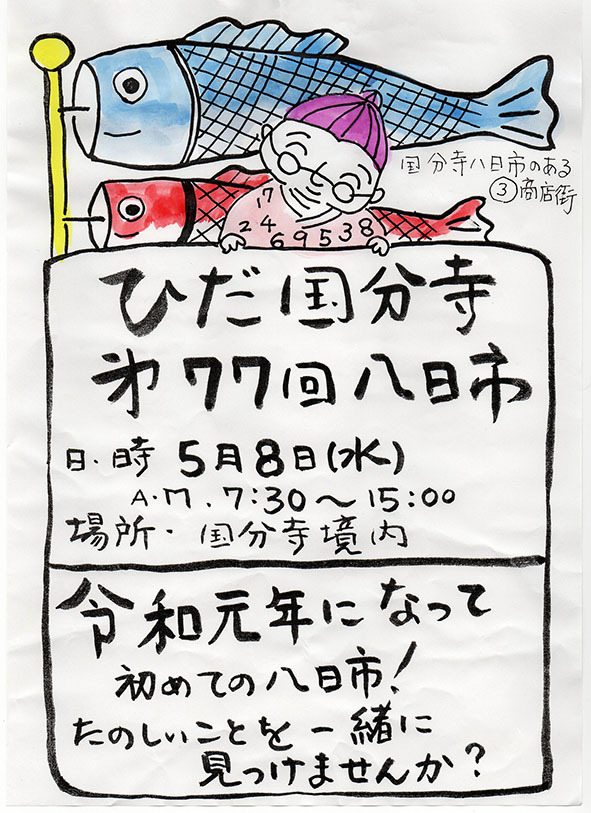 国分寺八日市のある
③商店街
17
2 4 6 9 5 3 8
ひだ国分寺
第77回八日市
日・時 5月8日(水)
A・M . 7:30〜15:00
場所・国分寺境内
令和元年になって
初めての八日市!
たのしいことを一緒に
見つけませんか?